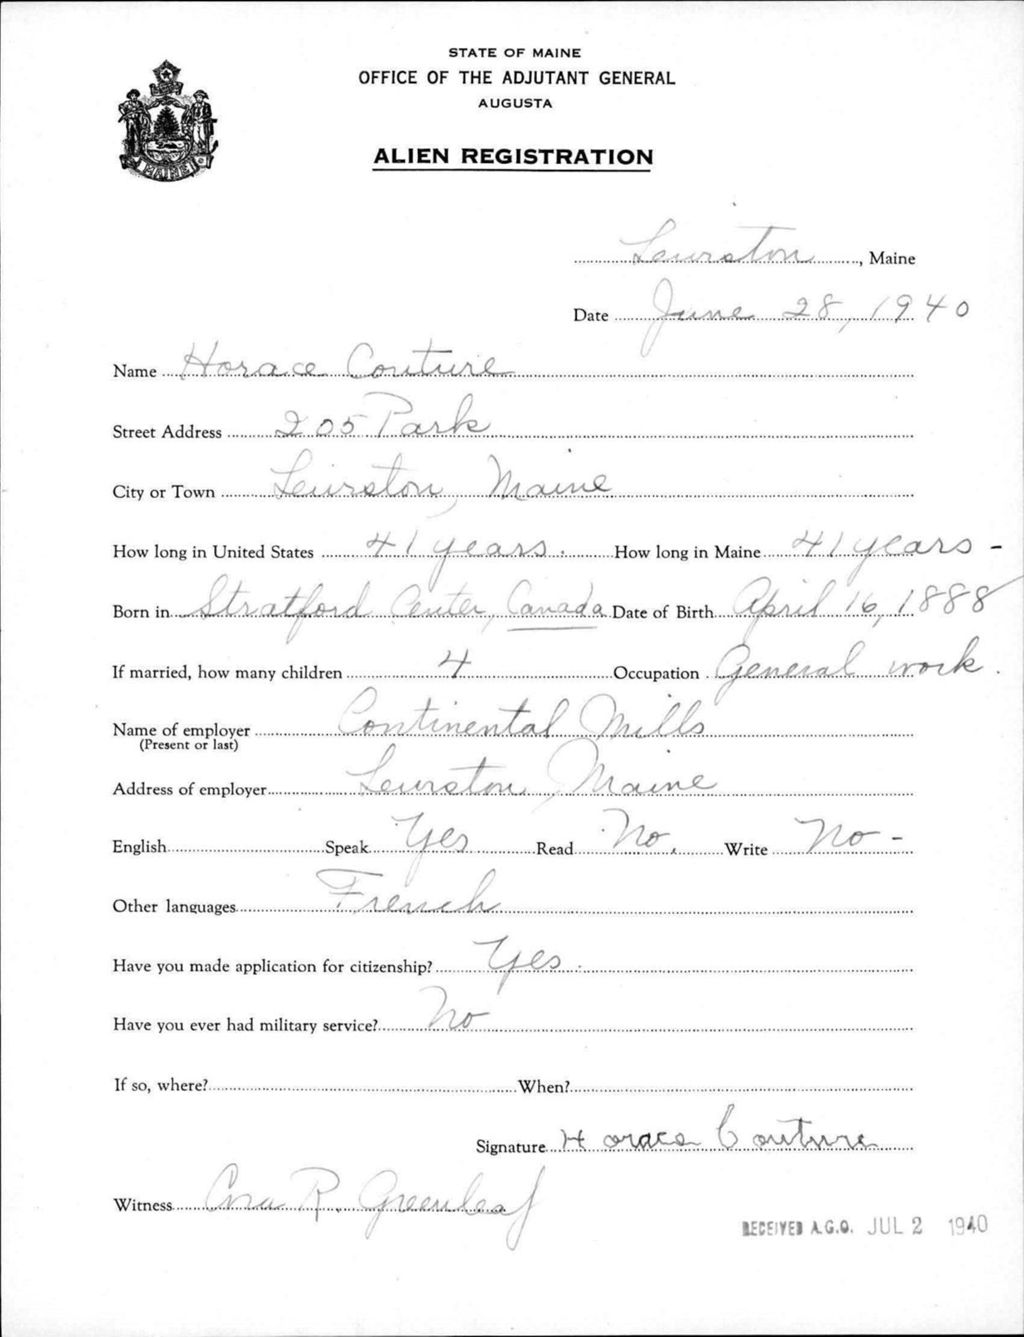 STATE OF MAINE
OFFICE OF THE ADJUTANT GENERAL
AUGUSTA
ALIEN REGISTRATION
MAINE
Lewiston, Maine
Date June 28, 1940
Name Horace Couture
Street Address 205 Park
City or Town Lewiston, Maine
How long in United States 41 years. How long in Maine 41 years -
Born in Stratford Center, Canada Date of Birth April 16, 1888
If married, how many children 4 Occupation General work.
Name of employer Continental Mills
(Present or last)
Address of employer Lewiston, Maine
English Speak Yes Read No. Write No -
Other languages French
Have you made application for citizenship? Yes.
Have you ever had military service? No
If so, where? When?
Signature Horace Couture
Witness R. Greenleaf
RECEIVED A.G.O. JUL 2 1940